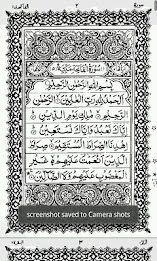 ٢
سُوْرَةُ الْفَاتِحَةِ
بِسْمِ اللهِ الرَّحْمٰنِ الرَّحِيْمِ
اَلْحَمْدُ لِلّٰهِ رَبِّ الْعٰلَمِيْنَ الرَّحْمٰنِ
الرَّحِيْمِ مٰلِكِ يَوْمِ الدِّيْنِ
اِيَّاكَ نَعْبُدُ وَاِيَّاكَ نَسْتَعِيْنُ
اِهْدِنَا الصِّرَاطَ الْمُسْتَقِيْمَ صِرَاطَ
الَّذِيْنَ اَنْعَمْتَ عَلَيْهِمْ غَيْرِ
الْمَغْضُوْبِ عَلَيْهِمْ وَلَا الضَّآلِّيْنَ
screenshot saved to Camera shots
٣